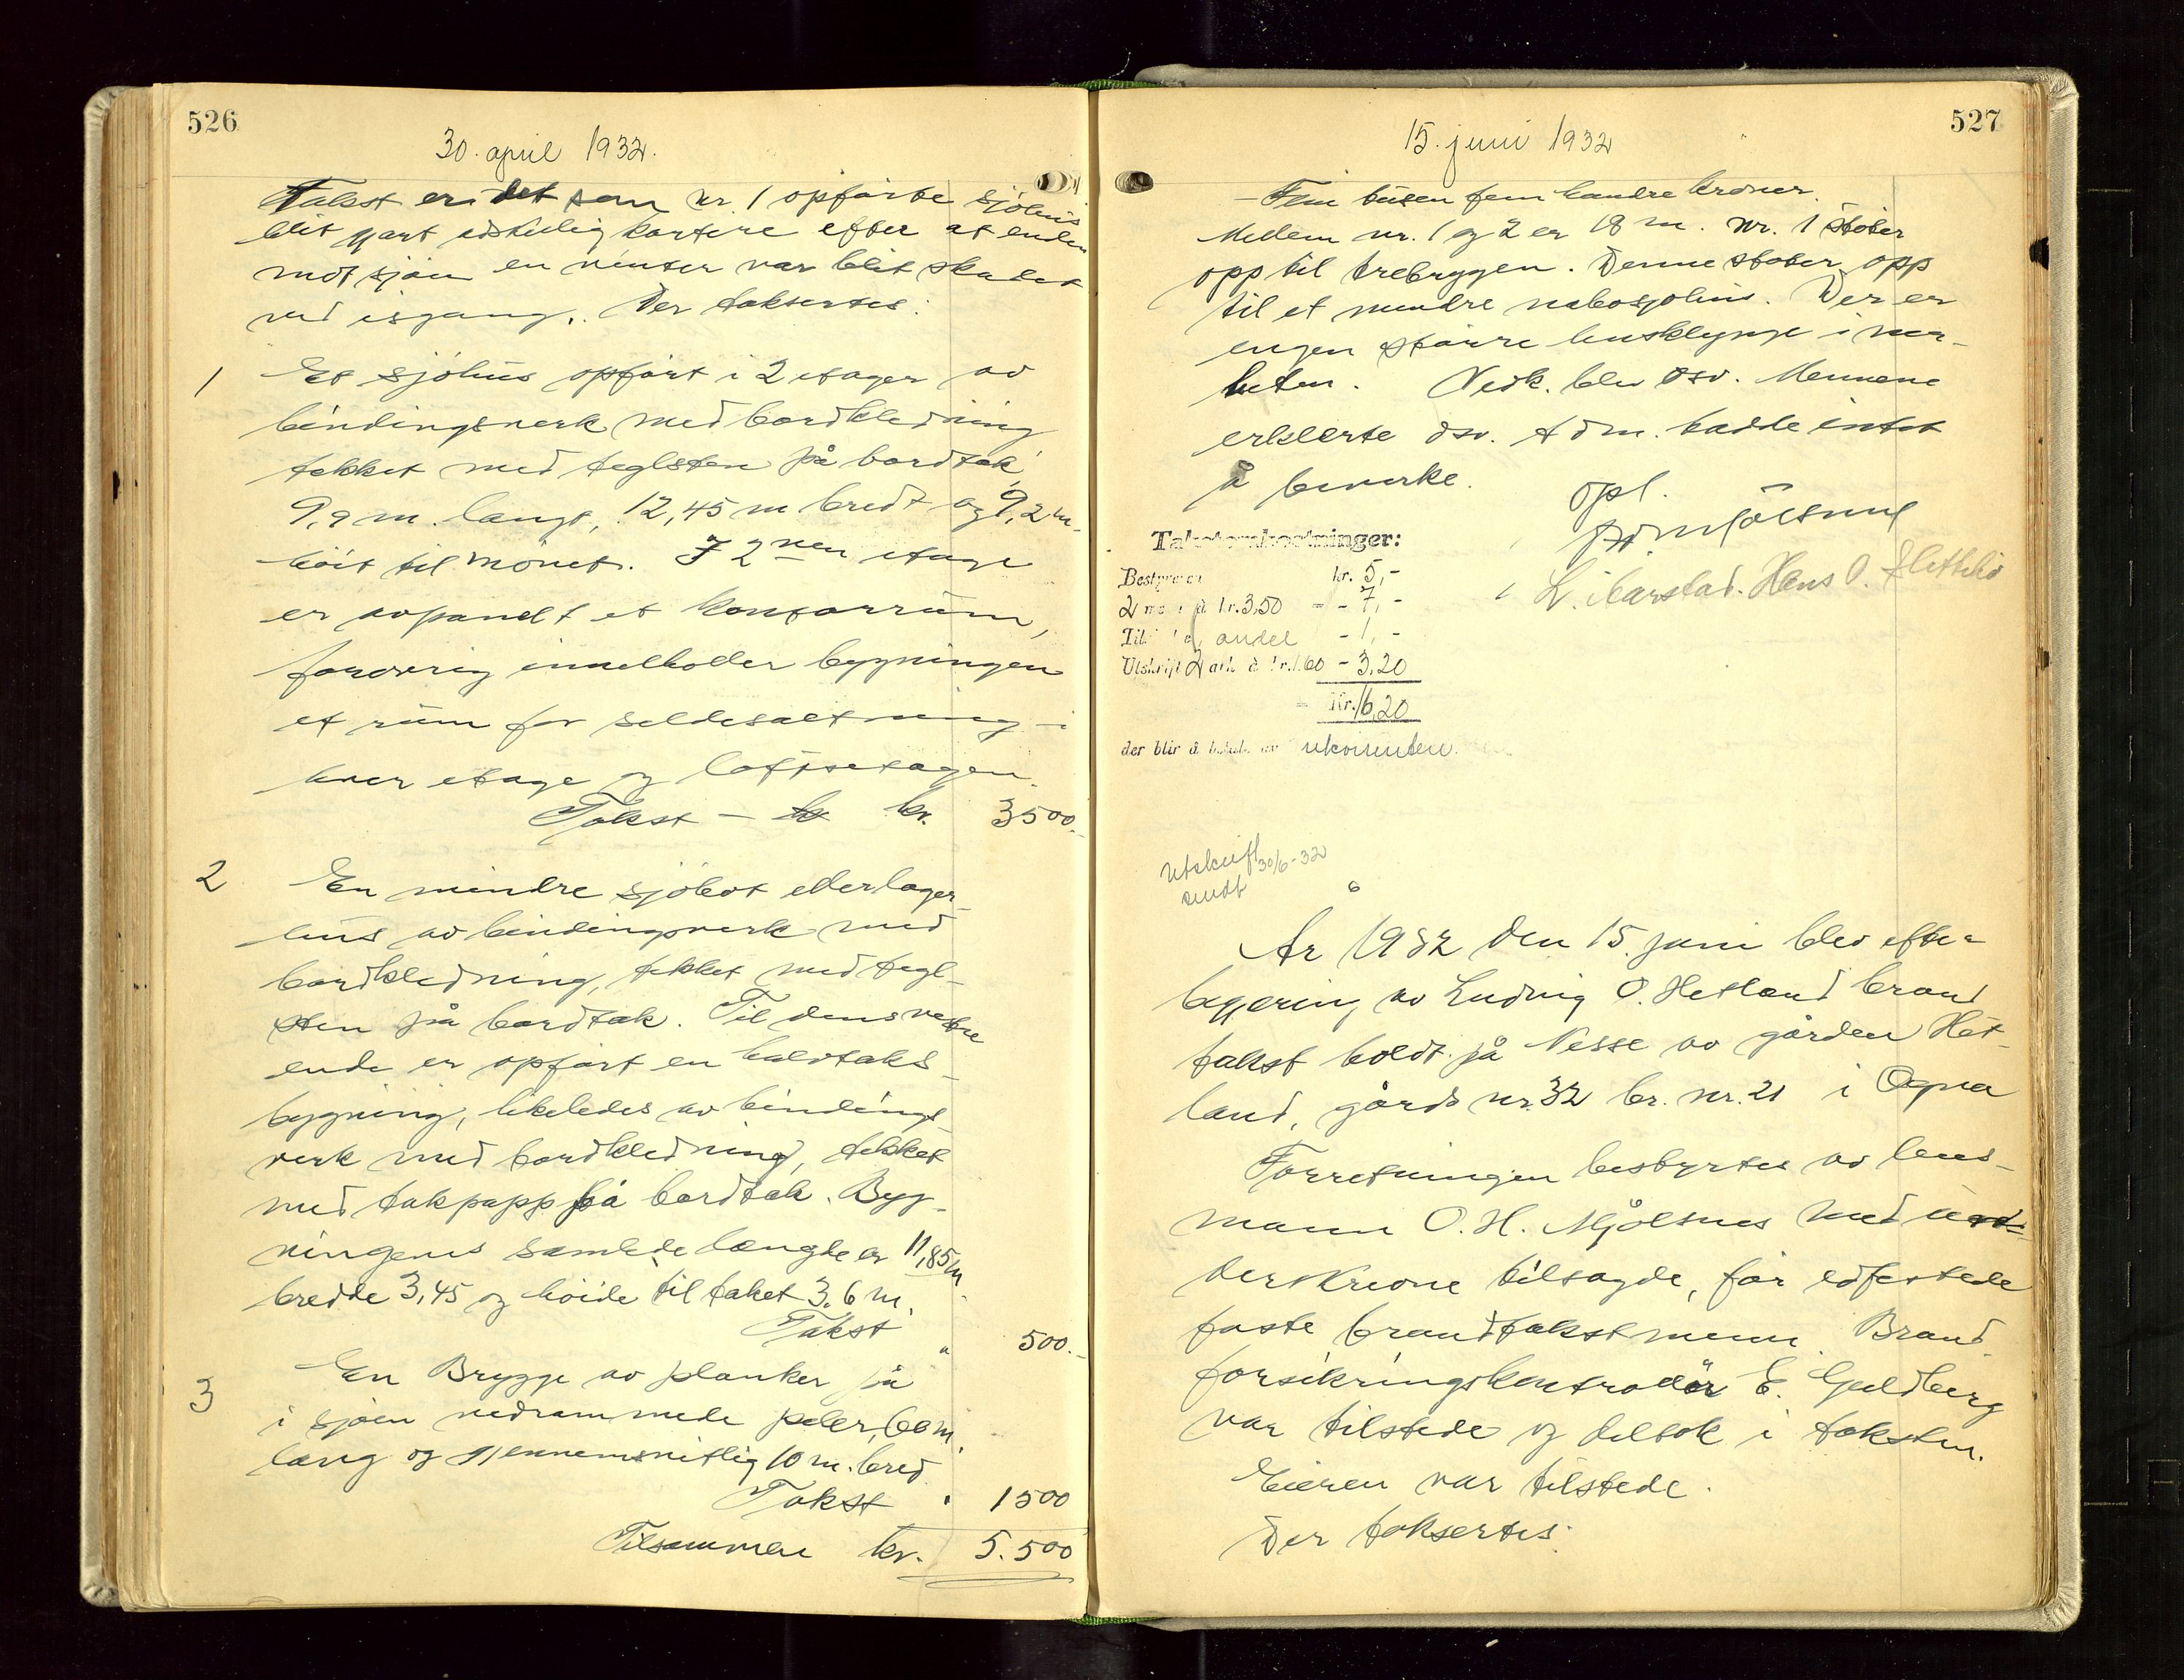 526
30. april 1932.
Takst er det som nr. 1 opförte sjöhus
blit gjort adskillig kortere efter at enden
mot sjöen en vinter var blit skadet
ved isgang. Der taksertes:
1 Et sjöhus opfört i 2 etager av
bindingsverk med bordkledning
tekket med teglsten på bordtak,
9,9 m. langt, 12,45 m bredt og 9,2 m.
höit til mönet. I 2nen etage
er avpanelt et kontorrum,
forövrig inneholder bygningen
et rum for sildesaltning i
hver etage og loftsetagen.
Takst — kr. 3500.-
2 En mindre sjöbot eller lager-
hus av bindingsverk med
bordkledning, tekket med tegl-
sten på bordtak. Til dens vestre
ende er opfört en halvtaks-
bygning, likeledes av bindings-
verk med bordkledning, tekket
med takpapp på bordtak. Byg-
ningens samlede længde er 11,85 m.
bredde 3,45 og höide til taket 3,6 m.
Takst " 500.-
3 En Brygge av planker på
i sjöen nedrammede peler, 60 m.
lang og gjennemsnitlig 10 m. bred
Takst " 1500
Tilsammen kr. 5.500
527
15. juni 1932
— Fem tusen fem hundre kroner.
Mellem nr. 1 og 2 er 18 m. Nr. 1 støter
opp til trebryggen. Denne støter opp
til et mindre nabosjøhus. Der er
ingen større husklynge i nær-
heten. Vedk. blev osv. Mennene
erklærte osv. Adm. hadde intet
å bemerke.
Opl.
O H Mjölsnes
L. Ibarstad. Hans O. Slettebø
Takstomkostninger:
Bestyreren kr. 5,-
2 menn à kr. 3,50 - - 7,-
andel - 1,-
Utskrift 2 ark à kr. 1.60 - 3,20
Kr. 16,20
der blir å betale av rekvirenten.
Utskrift 30/6-32
sendt
År 1932 den 15. juni blev efter
begjering av Ludvig O. Hetland brand
takst holdt på Nesse av gården Het-
land, gårds nr. 32 br. nr. 21 i Ogna
Forretningen bestyrtes av lens-
mann O. H. Mjölsnes med un-
derskrevne tilsagde, för edfestede
faste brandtakstmenn. Brand
forsikringskontrollör E. Guldberg
var tilstede og deltok i taksten.
Eieren var tilstede.
Der taksertes: